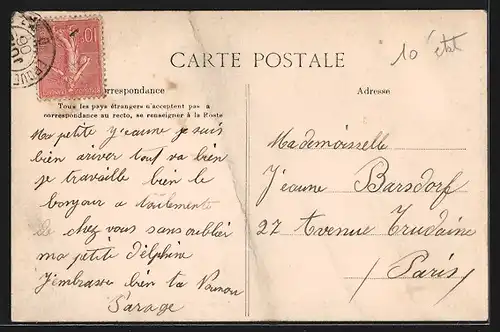 10
CARTE POSTALE
10 état
Correspondance
Tous les pays étrangers n'acceptent pas a
correspondance au recto, se renseigner à la Poste
Ma petite Yjeanne je suis
bien ariver tout va bien
je travaille bien le
bonjour a
chez vous sans oublier
ma petite Délphine
J'embrasse bien ta
Parage
Adresse
Mademoiselle
Yjeanne Barsdorf
27 Avenue Trudaine
Paris